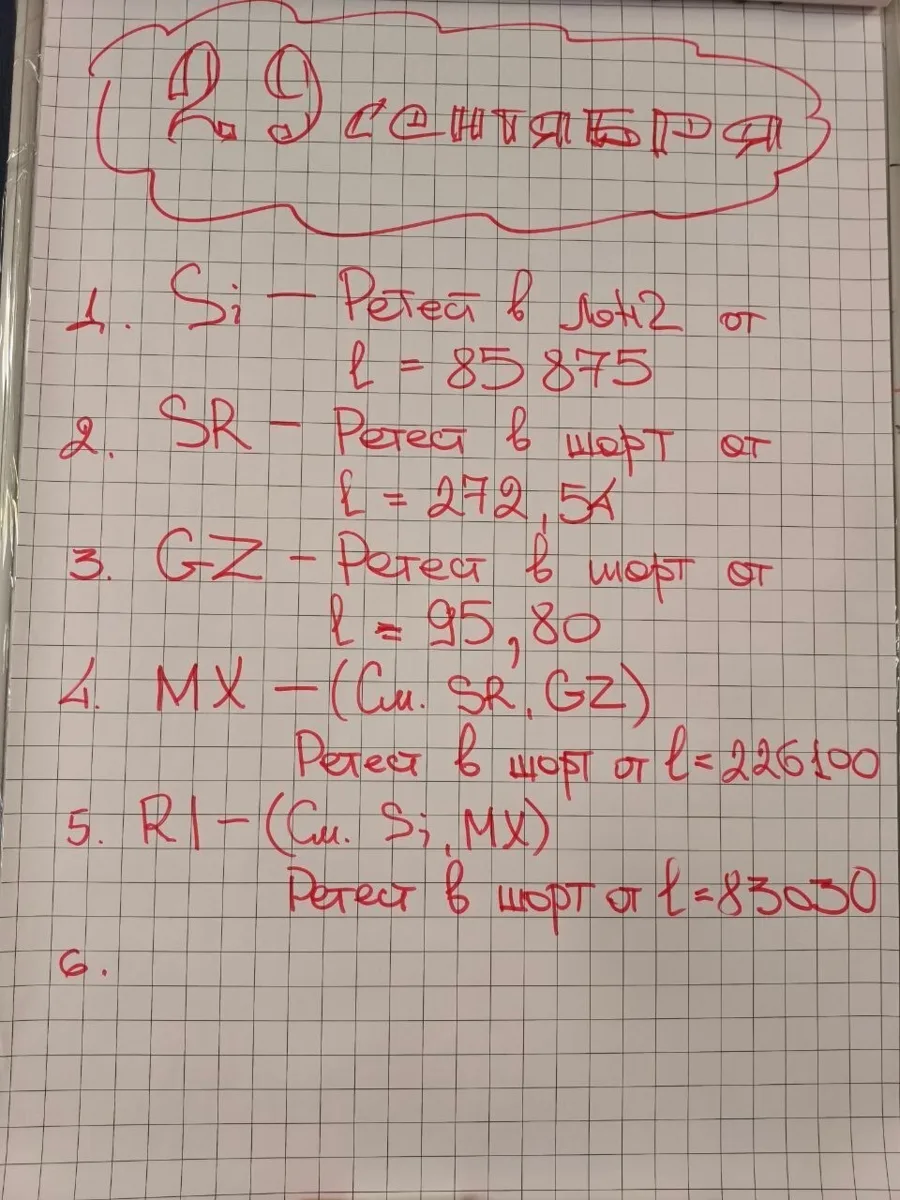 29 сентября
1. Si — Ретест в лонг от
l = 85 875
2. SR — Ретест в шорт от
l = 272,54
3. GZ — Ретест в шорт от
l = 95,80
4. MX — (См. SR, GZ)
Ретест в шорт от l = 226100
5. RI — (См. Si, MX)
Ретест в шорт от l = 83030
6.